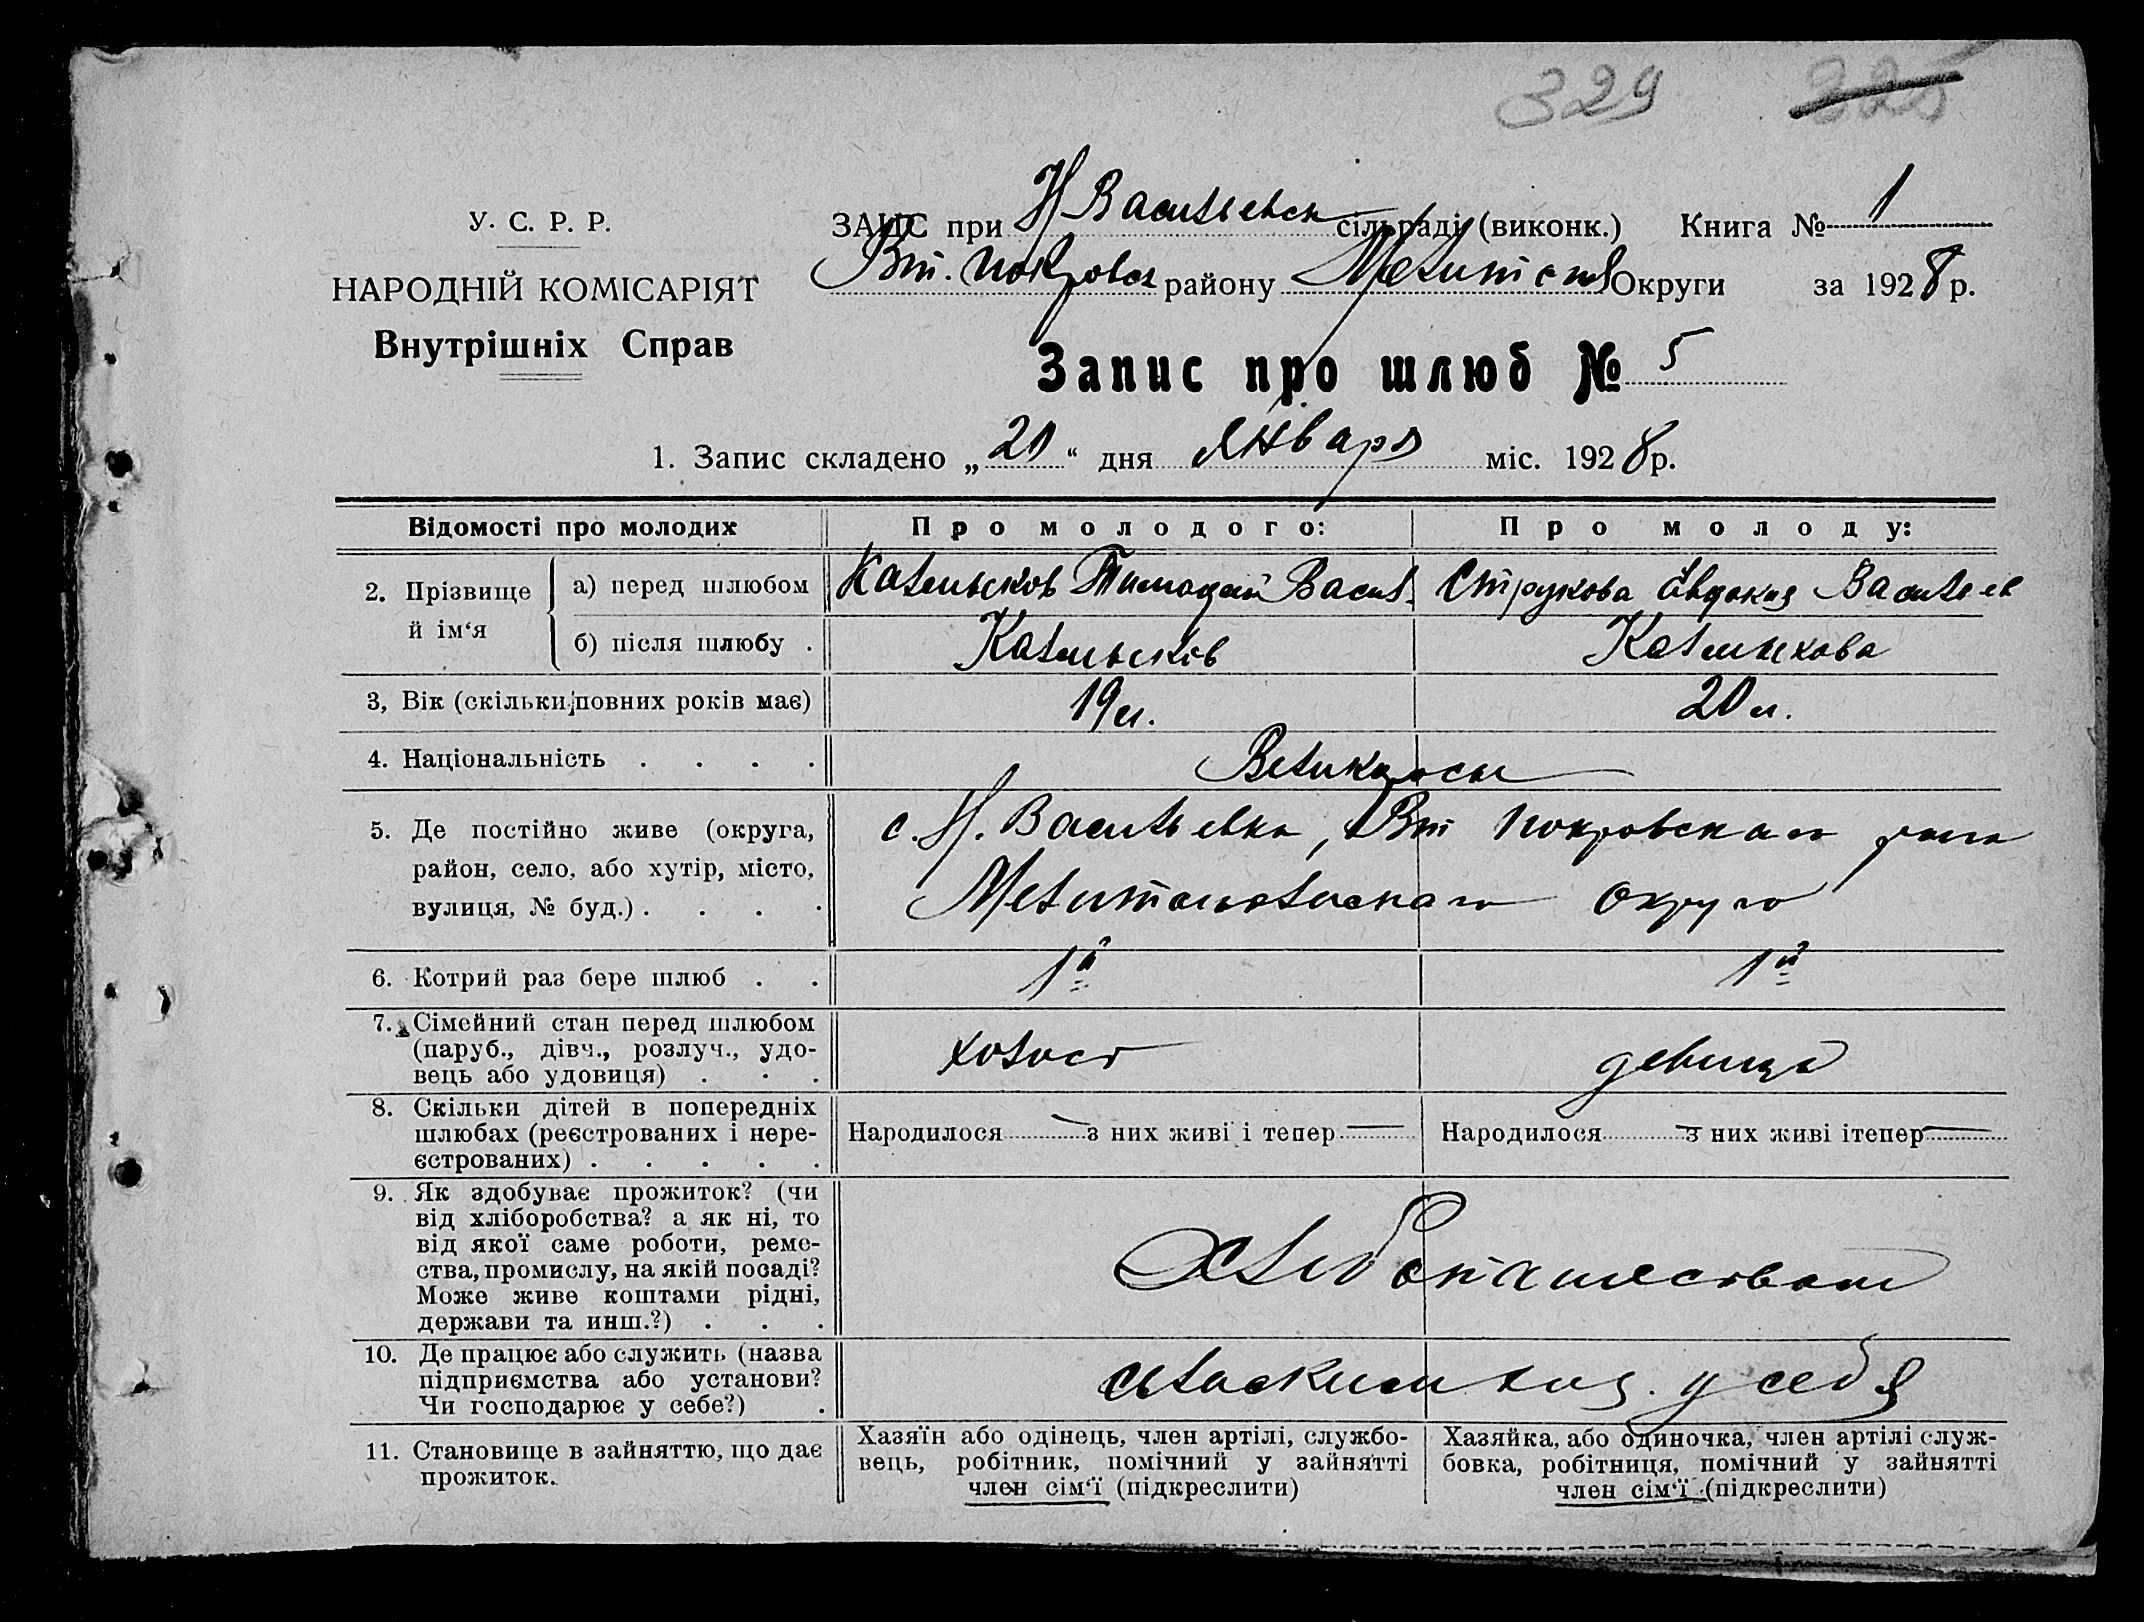 329 225
У. С. Р. Р.
НАРОДНІЙ КОМІСАРІЯТ
Внутрішніх Справ
ЗАГС при Н Васильевск сільраді (виконк.) Книга № 1
Вт. Покровск району Мелитоп Округи за 1928 р.
Запис про шлюб № 5
1. Запис складено „20“ дня Января міс. 1928 р.
Відомості про молодих Про молодого: Про молоду:
2. Прізвище й ім‘я
а) перед шлюбом Васил. Струкова Авдокия Василев
б) після шлюбу .
3, Вік (скільки повних років має) 19 л. 20 л.
4. Національність . . . . Великросы
5. Де постійно живе (округа, район, село, або хутір, місто, вулиця, № буд.) . . . .
с. Н. Васильевка, Вт Покровскаго
Мелитопольскаго Округа
6. Котрий раз бере шлюб . . 1й 1й
7. Сімейний стан перед шлюбом (паруб., дівч., розлуч., удовець або удовиця) . . . холост девица
8. Скільки дітей в попередніх шлюбах (реєстрованих і нереєстрованих) . . . . .
Народилося — з них живі і тепер — Народилося — з них живі ітепер —
9. Як здобуває прожиток? (чи від хліборобства? а як ні, то від якої саме роботи, ремества, промислу, на якій посаді? Може живе коштами рідні, держави та инш.?) . . .
10. Де працює або служить (назва підприємства або установи? Чи господарює у себе?) .
у себя
11. Становище в зайняттю, що дає прожиток.
Хазяїн або одінець, член артілі, службовець, робітник, помічний у зайнятті член сім‘ї (підкреслити)
Хазяйка, або одиночка, член артілі службовка, робітниця, помічний у зайнятті член сім‘ї (підкреслити)